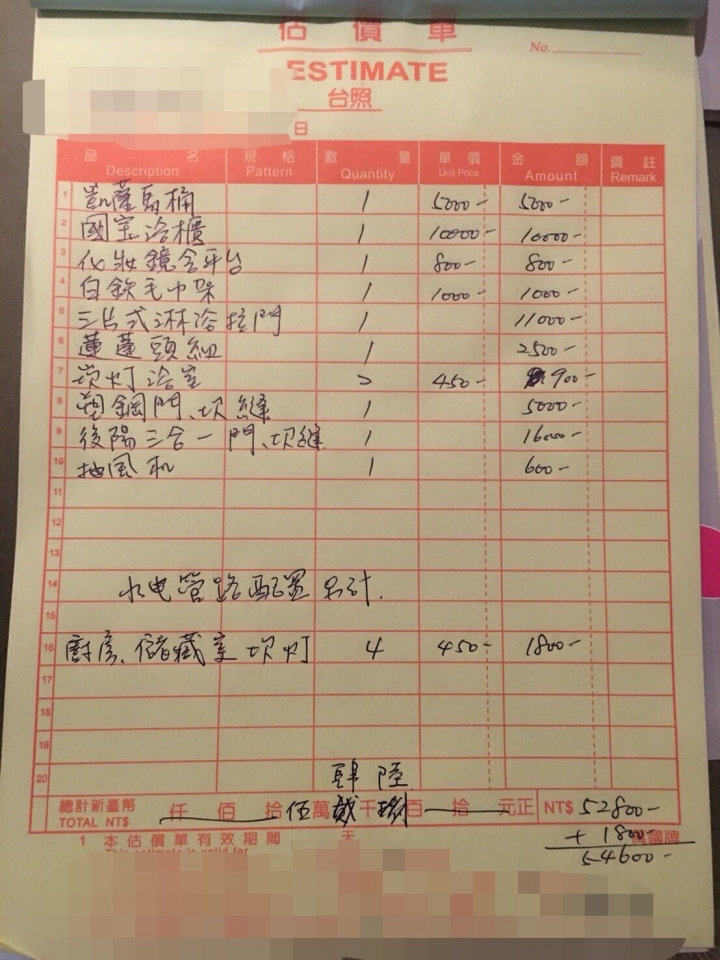 估價單
No.
ESTIMATE
台照
日
品名 規格 數量 單價 金額 備註
Description Pattern Quantity Unit Price Amount Remark
1 凱薩馬桶 1 5000- 5000-
2 國宝浴櫃 1 10000- 10000-
3 化妝鏡含平台 1 800- 800-
4 白鉄毛巾架 1 1000- 1000-
5 三片式淋浴拉門 1 11000-
6 蓮蓬頭組 1 2500-
7 崁灯浴室 2 450- 900-
8 塑鋼門、坎縫 1 5000-
9 後陽三合一門、坎縫 1 16000-
10 抽風机 1 600-
11
12
13
14 水电管路配置另計.
15
16 廚房、儲藏室坎灯 4 450- 1800-
17
18
19
20 肆 陸
總計新臺幣 仟 佰 拾 伍 萬 貳 千 捌 百 拾 元正 NT$ 52800-
TOTAL NT$ + 1800-
1 本估價單有效期間 天 萬國牌
54600-
This estimate is valid for